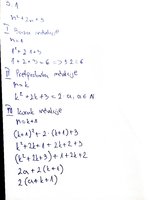 2.1
n²+2n+3
I Baza indukcije
n=1
1²+2·1+3
1+2+3=6 => 1 2 6
II Pretpostavka indukcije
n=k
k²+2k+3=2·a, a∈N
III Korak indukcije
n=k+1
(k+1)²+2·(k+1)+3
k²+2k+1+2k+2+3
(k²+2k+3)+1+2k+2
2a+2(k+1)
2(a+k+1)